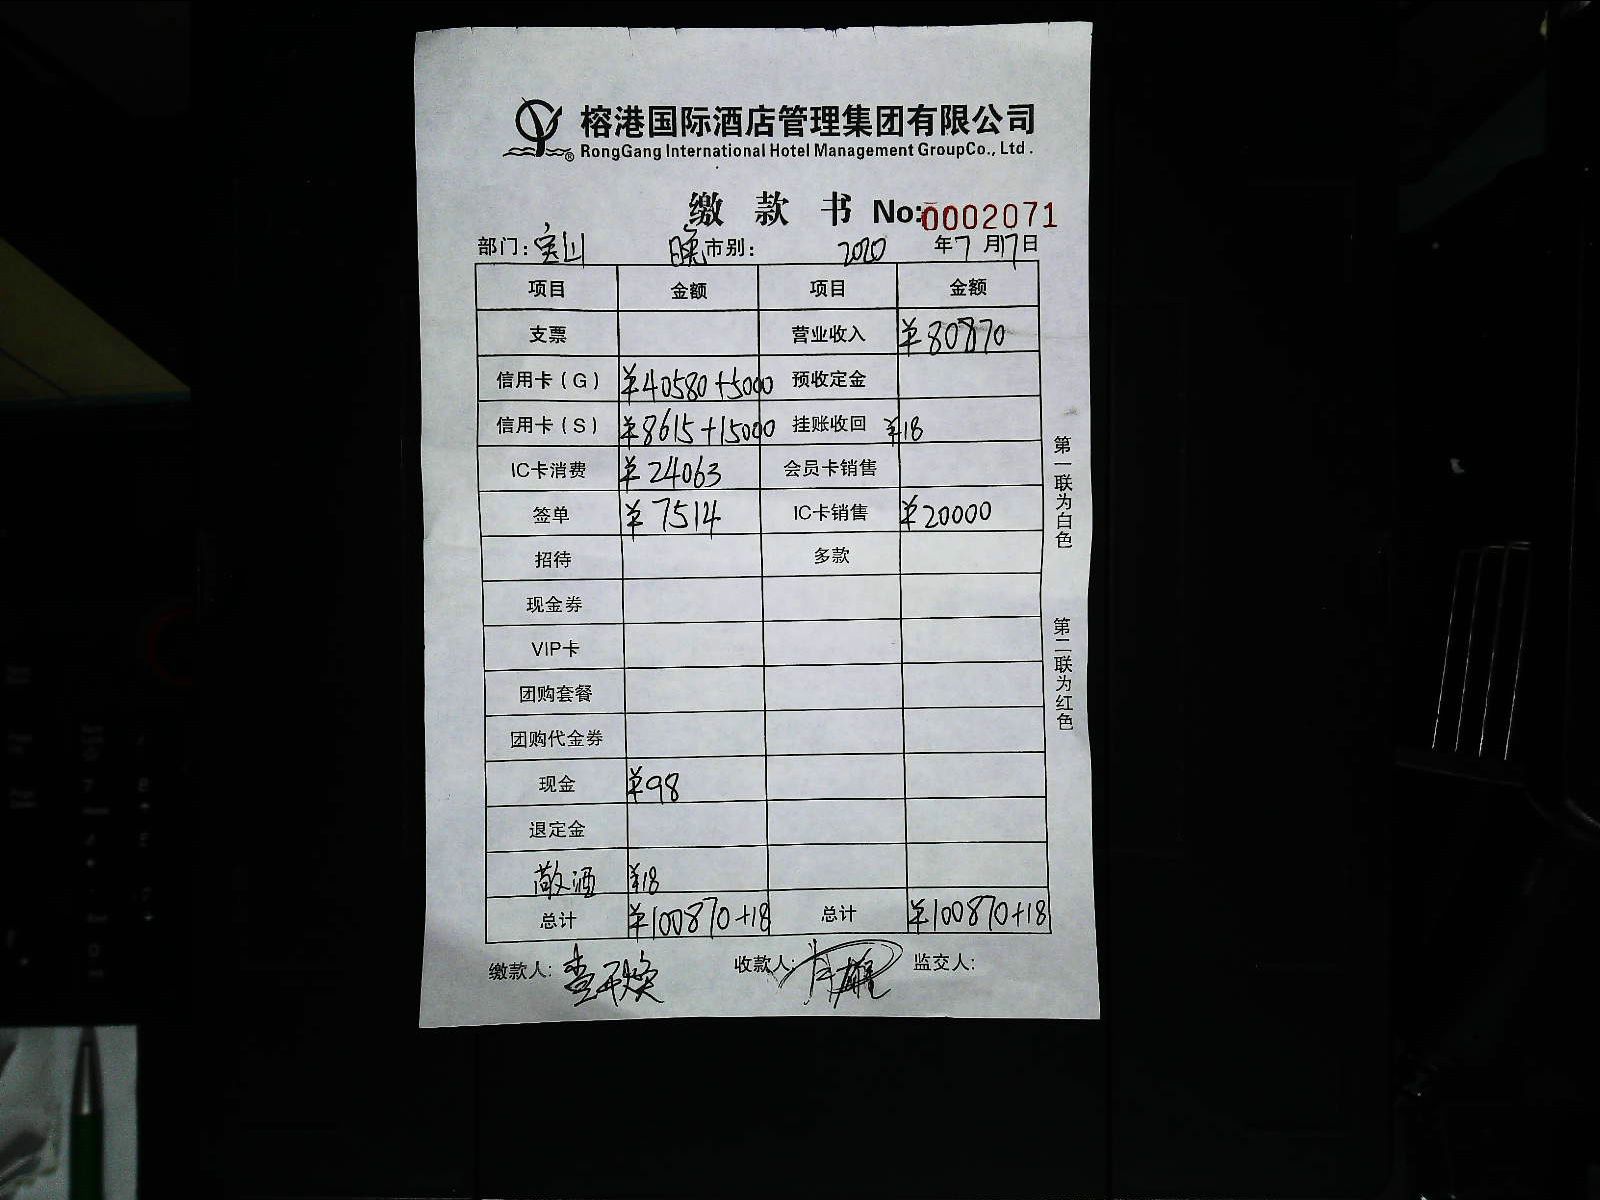 榕港国际酒店管理集团有限公司
RongGang International Hotel Management GroupCo., Ltd.
缴款书 No:0002071
部门: 宝山 晚市别: 2020 年7月17日
项目 金额 项目 金额
支票 营业收入 ¥80870
信用卡(G) ¥40580+5000 预收定金
信用卡(S) ¥8615+15000 挂账收回 ¥18
IC卡消费 ¥24063 会员卡销售
签单 ¥7514 IC卡销售 ¥20000
招待 多款
现金券
VIP卡
团购套餐
团购代金券
现金 ¥98
退定金
散酒 ¥18
总计 ¥100870+18 总计 ¥100870+18
缴款人: 收款人: 监交人:
第一联为白色
第二联为红色